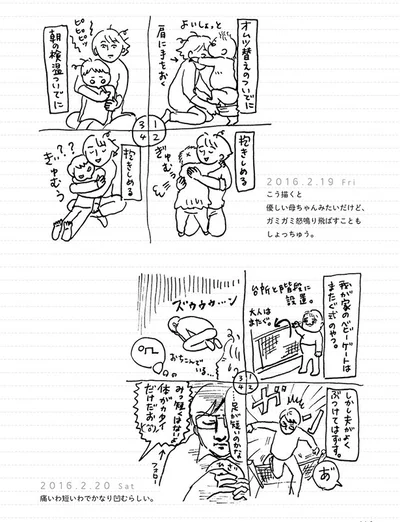 オムツ替えのついでに
よいしょっと
肩に手おく
抱きしめる
ぎゅむぅ
朝の検温ついでに
抱きしめる
3 1
4 2
2016.2.19 Fri
こう描くと
優しい母ちゃんみたいだけど、
ガミガミ怒鳴り飛ばすことも
しょっちゅう。
我が家のベビーゲートは
またぐ式のやつ。
台所と階段に
設置。
大人は
またぐ。
しかし夫がよく
ぶつけてはずす。
あ゛
ズゥゥゥ…ン
おちこんでいる…
…足が短いのかな…
みっ短くはないよ
体がカタイ
だけだお
フォロー
3 1
4 2
2016.2.20 Sat
痛いわ短いわでかなり凹むらしい。